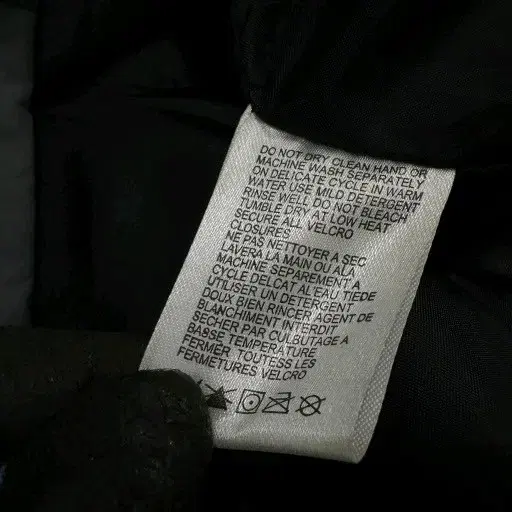 DO NOT DRY CLEAN HAND OR
MACHINE WASH SEPARATELY
ON DELICATE CYCLE IN WARM
WATER USE MILD DETERGENT
RINSE WELL DO NOT BLEACH
TUMBLE DRY AT LOW HEAT
SECURE ALL VELCRO
CLOSURES
NE PAS NETTOYER A SEC
LAVERA LA MAIN OU ALA
MACHINE SEPAREMENT A
CYCLE DELCAT AL EAU TIEDE
UTILISER UN DETERGENT
DOUX BIEN RINCER AGENT DE
BLANCHIMENT INTERDIT
SECHER PAR CULBUTAGE A
BASSE TEMPERATURE
FERMER TOUTESS LES
FERMETURES VELCRO